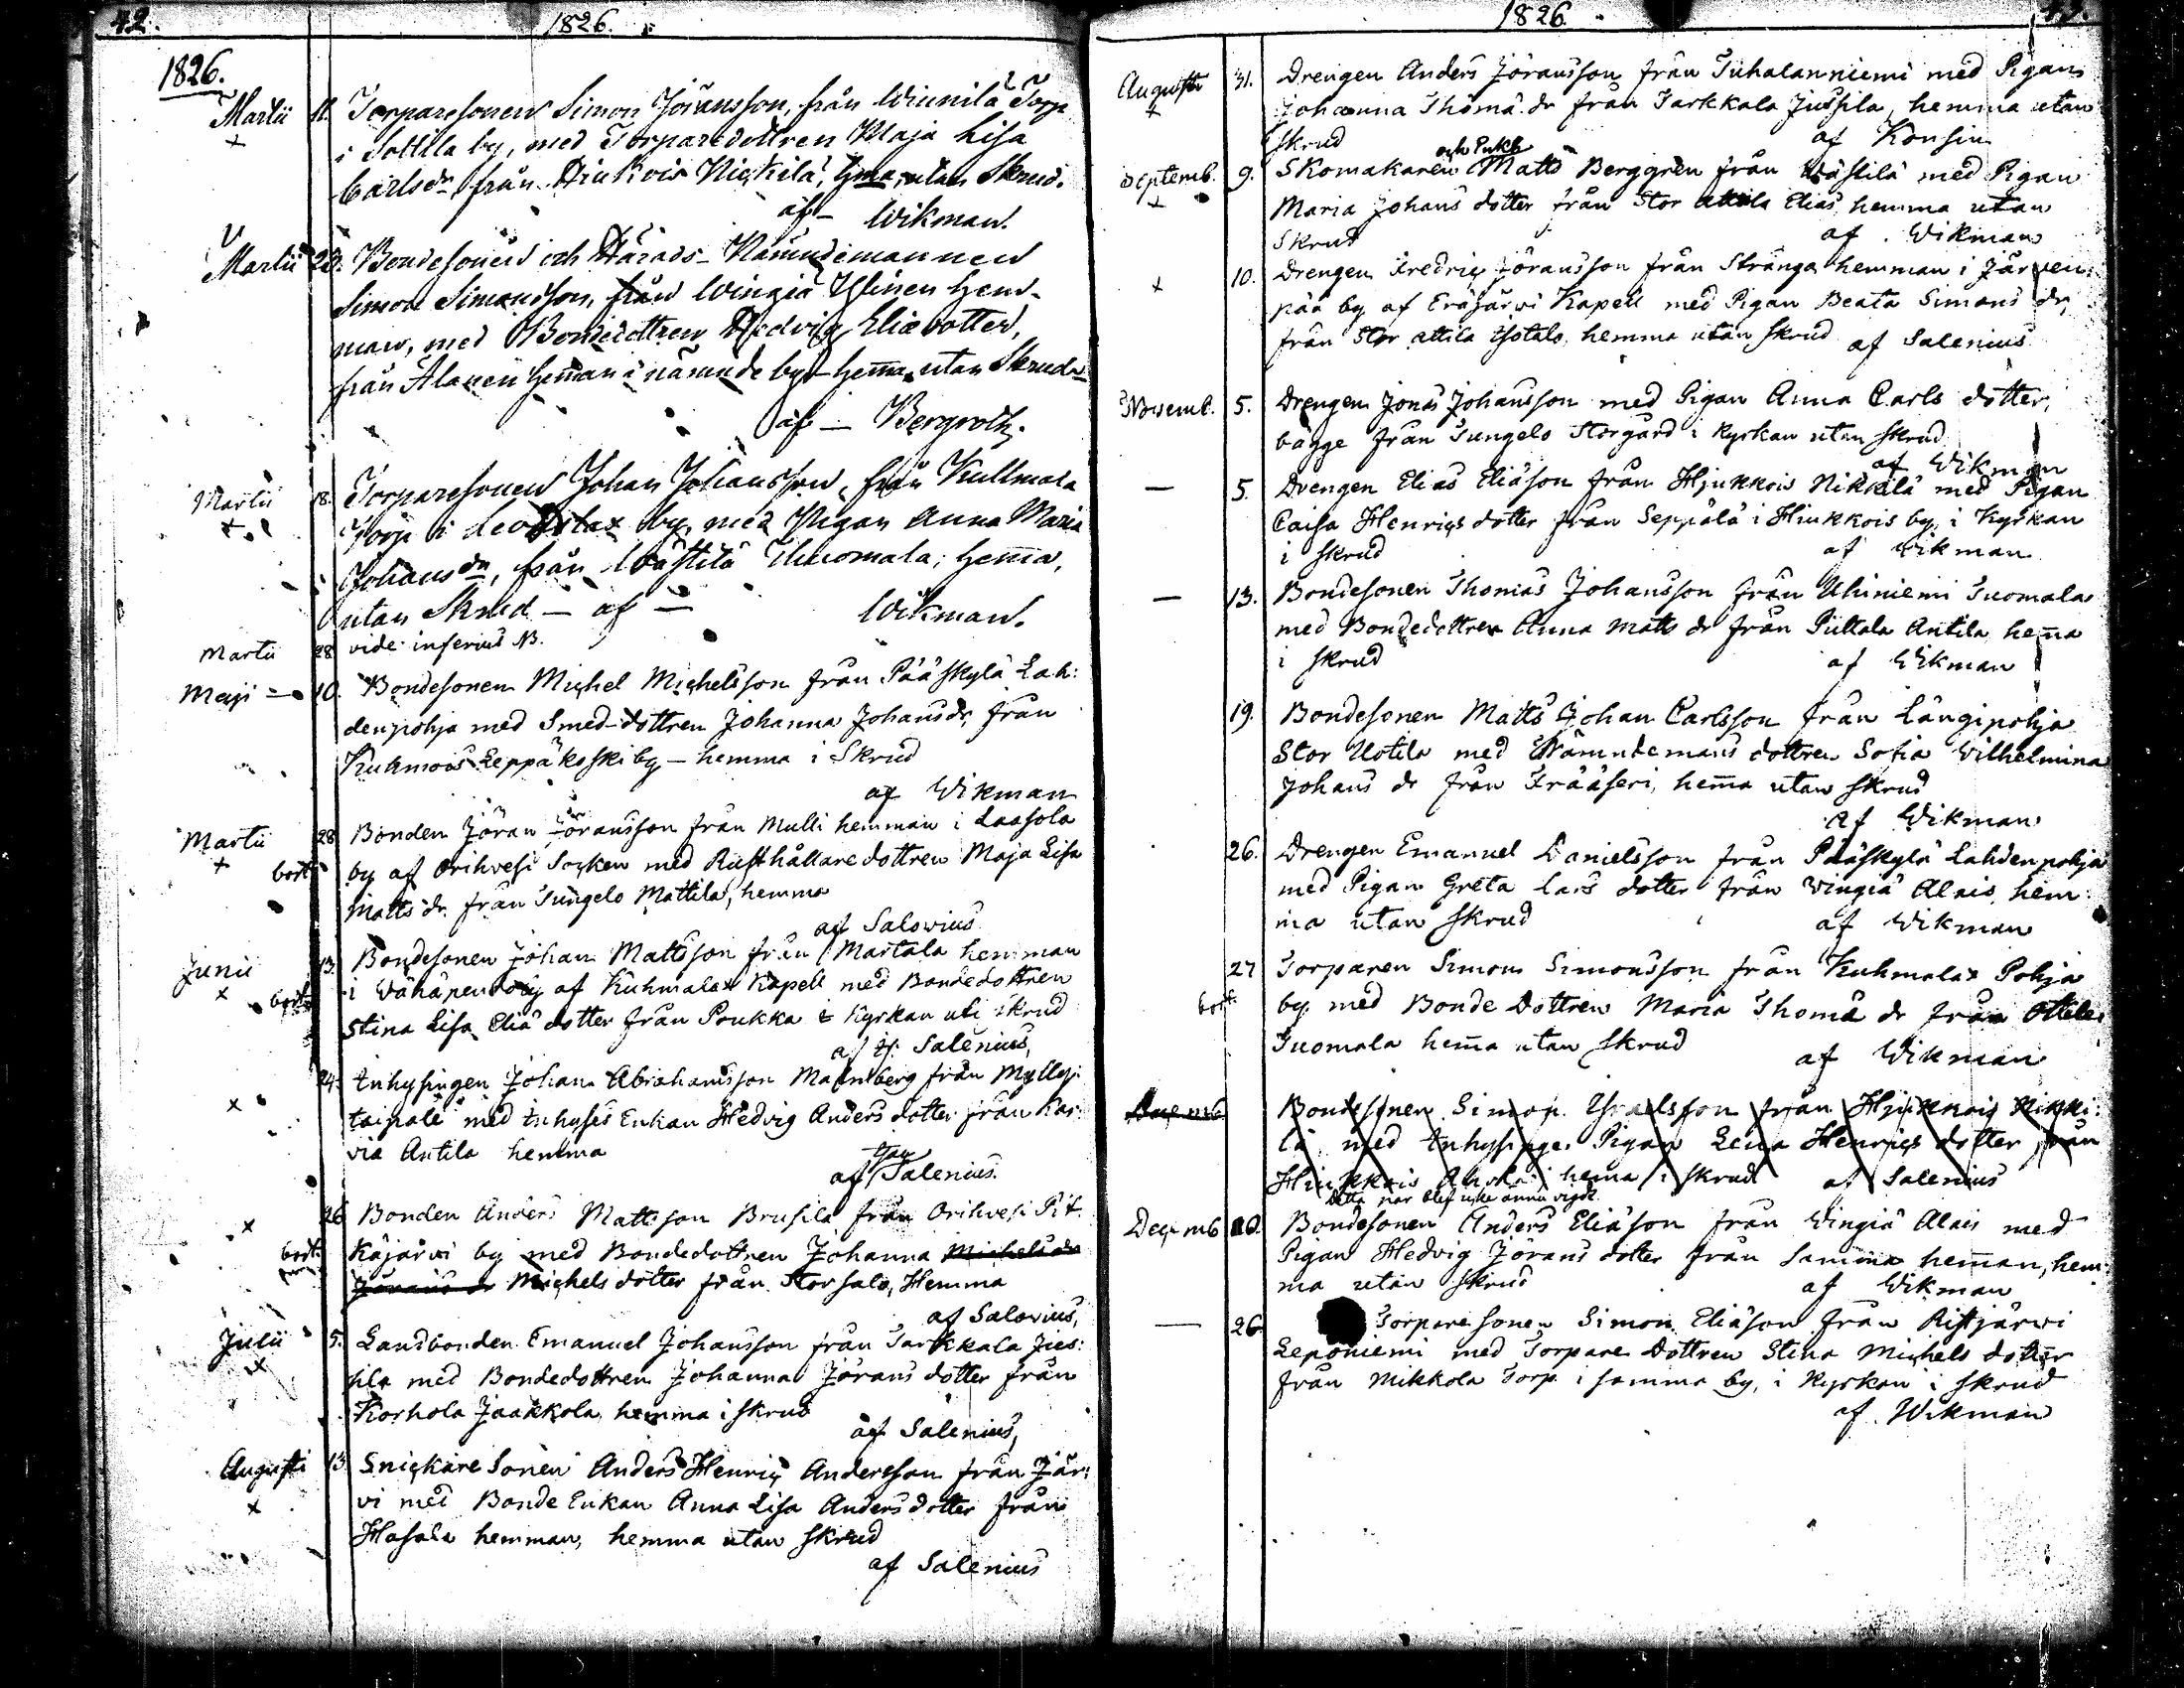 42.
1826.
1826.
Martii 11. Torparesonen Simon Jöransson, från Wiinilä Torp
i Sottila by, med Torparedottren Maja Lisa
Carlsdr från Hiukois Nickilä, hema, utan Skrud.
af Wikman.
Martii 20. Bondesonen och Härads-Nämndemannen
Simon Simonsson, från Wingiä Ylinen hem-
man, med Bondedottren Hedvig Eliædotter,
från Alanen heman i nämnde by hema utan Skrud
af Bergroth.
Martii 18. Torparesonen Johan Johansson, från Kullmala
Torp i Leo by, med Pigan Anna Maria
Johansdr, från Wästilä Thuomala; hema,
utan Skrud af Wikman.
Martii 28 vide inferius N.
Maji 10. Bondesonen Michel Michelsson från Pääskylä Lah:
denpohja med Smed-dottren Johanna Johansdr, från
Kuhmois Leppäkoski by - hemma i Skrud
af Wikman
Martii 28 Bonden Jöran Jöransson från Mulli hemman i Laasola
bort by af Orihvesi Socken med Rusthållare dottren Maja Lisa
Matts dr. från Jungelo Mattila, hemma
af Salovius
Junii 13. Bondesonen Johan Mattsson från Martala hemman
bort i Wähäpendo by af Kuhmalax Kapell med Bondedottren
Stina Lisa Eliä dotter från Poukka i Kyrkan uti skrud
af Tj. Salenius,
24. Inhysingen Johan Abrahamsson Malmberg från Mylly:
taipale med Inhyses Enkan Hedvig Anders dotter från Kar:
via Antila hemma
af Salenius.
26 Bonden Anders Mattsson Brusila från Orihvesi Pit.
bort Käjärvi by med Bondedottren Johanna Michels dr
Jörans dr Michels dotter från Storsalo, Hemma
af Salovius,
Julii 5. Landbonden Emanuel Johansson från Sarkkala Jus:
sila med Bondedottren Johanna Jörans dotter från
Korhola Jaakkola hemma i skrud
af Salenius,
Augusti 13 Snickare Sonen Anders Henric Andersson från Jär:
vi med Bonde Enkan Anna Lisa Anders dotter från
Hasala hemman, hemma utan skrud
af Salenius
1826.
Augusti 31. Drengen Anders Jöransson från Juhalanniemi med Pigan
Johanna Thomä. dr från Sarkkala Jussila, hemma utan
skrud af Konsin
Septemb. 9. Skomakaren och Enkl Matts Berggren från Wästilä med Pigan
Maria Johans dotter från Stor Attila Elias, hemma utan
Skrud af Wikman
10. Drengen Fredric Jöransson från Stränga hemman i Järven:
pää by af Eräjärvi Kapell med Pigan Beata Simons dr,
från Stor attila Isotalo hemma utan skrud af Salenius
Novemb. 5. Drengen Jonas Johansson med Pigan Anna Carls dotter,
bägge från Jungelo Storgård i Kyrkan utan skrud
af Wikman
5. Drengen Elias Eliäson från Hjukkois Nikkilä med Pigan
Caisa Henrics dotter från Seppälä i Hiukkois by, i Kyrkan
i skrud af Wikman
13. Bondesonen Thomas Johansson från Uhiniemi Tuomala
med Bondedottren Anna Matts dr från Puttala Antila hema
i skrud af Wikman
19. Bondesonen Matts Johan Carlsson från Längipohja
Stor Uotila med Nämndemans dottren Sofia Wilhelmina
Johans dr från Frääseri, hema utan skrud
af Wikman
26. Drengen Emanuel Danielsson från Pääskylä Lahdenpohja
med Pigan Greta Lars dotter från Wingiä Alais, hem:
ma utan skrud af Wikman
27 Torparen Simon Simonsson från Kuhmalax Pohja
bort by med Bonde Dottren Maria Thomä dr från Ottila
Tuomala hema utan skrud
af Wikman
Bondesonen Simon Israelsson från Hjukkois Nikki:
lä med Inhysinge Pigan Lena Henrics dotter från
Hiukkois hema i skrud af Salenius
Detta par blef icke ännu vigdt
Decemb 10. Bondesonen Anders Eliäson från Wingiä Alais med
Pigan Hedvig Jörans dotter från Samma heman, hem:
ma utan skrud af Wikman
26. Torpare sonen Simon Eliäson från Ristjärvi
Leponiemi med Torpare Dottren Stina Michels dotter
från Mikkola Torp i samma by, i Kyrkan i skrud
af Wikman